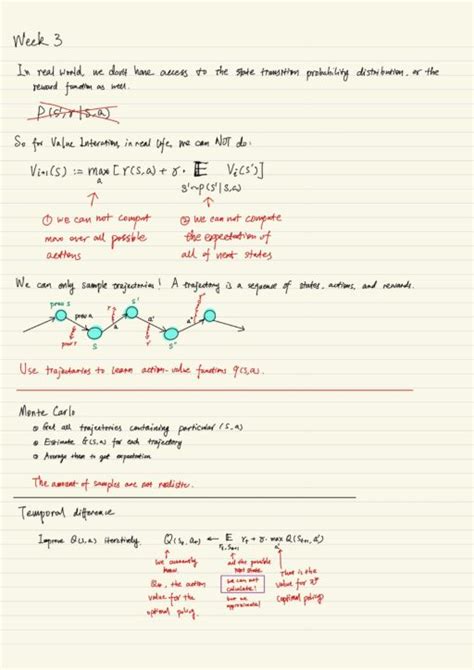 Week 3
In real world, we don't have access to the state transition probability distribution, or the
reward function as well.
p(s',r|s,a)
So for Value Interation, in real life, we can NOT do:
Vi+1(s) := max [r(s,a) + γ · E Vi(s')]
a s'~p(s'|s,a)
① we can not comput
max over all possible
actions
② we can not compute
the expectation of
all of next states
We can only sample trajectories! A trajectory is a sequence of states, actions, and rewards.
prev s
prev a
prev r
s
a
r
s'
a'
r'
s''
Use trajectories to learn action-value functions q(s,a).
Monte Carlo
Get all trajectories containing particular (s,a)
Estimate G(s,a) for each trajectory
Average them to get expectation
The amount of samples are not realistic.
Temporal difference
Improve Q(s,a) iteratively. Q(st,at) ← E rt + γ max Q(st+1,a')
rt,st+1 a'
We currently
have
the action
value for the
optimal policy.
all the possible
next state.
we can not
calculate!
but we
approximate!
This is the
value for
(optimal policy)